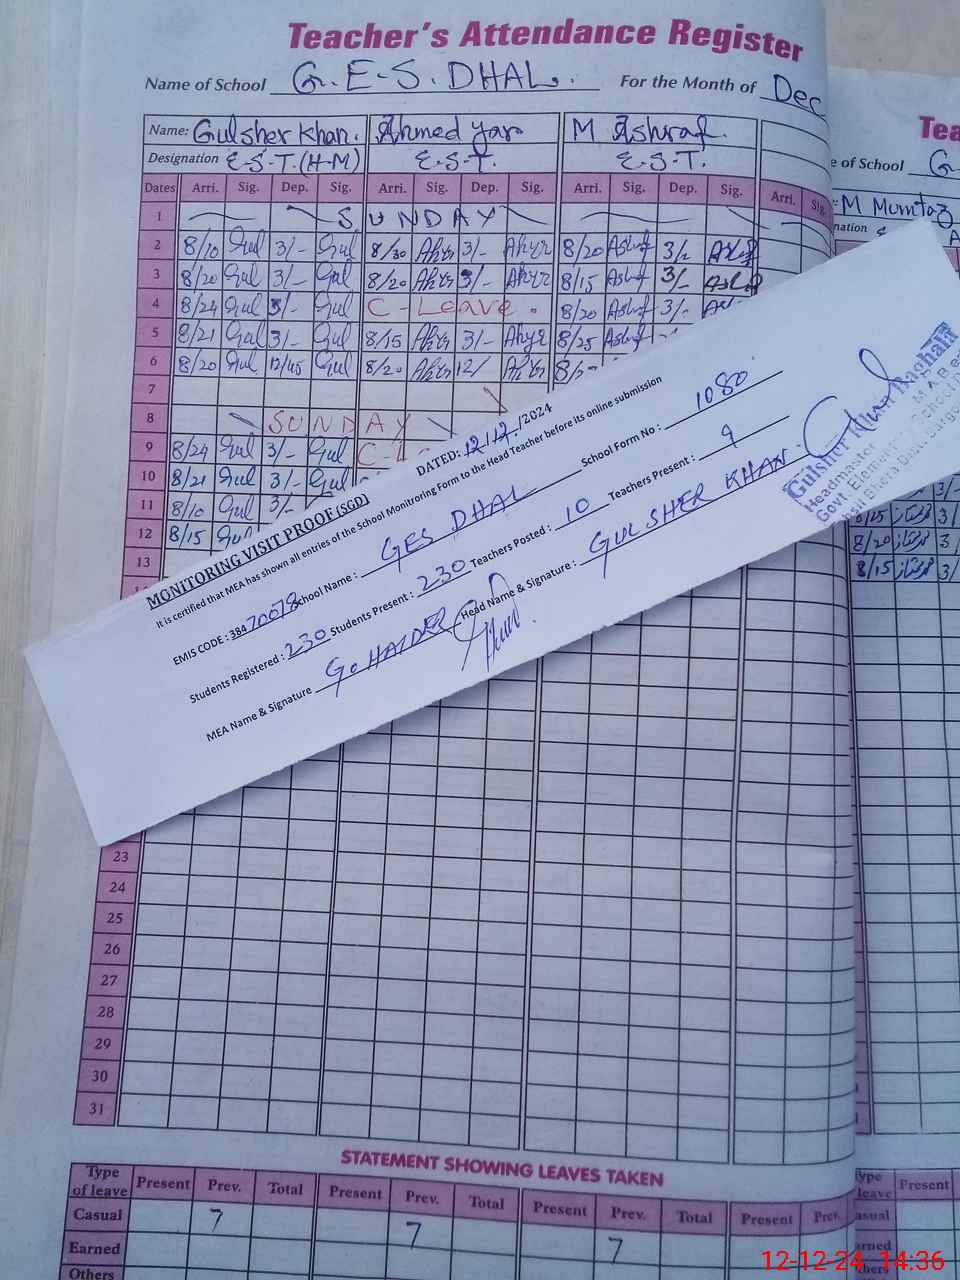 Teacher's Attendance Register
Name of School G.E.S. DHAL. For the Month of Dec
Name: Gulsher Khan. Ahmed Yar M Ashraf.
Designation E.S.T.(H-M) E.S.T. E.S.T.
Dates Arri. Sig. Dep. Sig. Arri. Sig. Dep. Sig. Arri. Sig. Dep. Sig. Arri. Sig.
1 SUNDAY
2 8/10 Gul 3/- Gul 8/30 Ahyr 3/- Ahyr 8/20 Ashraf Ashraf
3 8/20 Gul 3/- Gul 8/20 Ahyr 3/- Ahyr 8/15 Ashraf 3/- Ashraf
4 8/24 Gul 3/- Gul C-Leave. 8/20 Ashraf 3/-
5 8/21 Gul 3/- Gul 8/15 Ahyr 3/- Ahyr 8/25 Ashraf
6 8/20 Gul 12/45 Gul 8/20 Ahyr 12/ Ahyr
7
8 SUNDAY
9 8/24 Gul 3/- Gul C-
10 8/21 Gul 3/- Gul
11 8/10 Gul 3/-
12 8/15 Gul
13
MONITORING VISIT PROOF (SGD) DATED: 12/12/2024
It is certified that MEA has shown all entries of the School Monitroing Form to the Head Teacher before its online submission
EMIS CODE : 38470078 School Name : GES DHAL School Form No : 1080
Students Registered : 230 Students Present : 230 Teachers Posted : 10 Teachers Present : 9
MEA Name & Signature G. HAIDER Head Name & Signature : GULSHER KHAN
Gulsher Khan
Headmaster
Govt. Elementary School
23
24
25
26
27
28
29
30
31
STATEMENT SHOWING LEAVES TAKEN
Type of leave Present Prev. Total Present Prev. Total Present Prev. Total Present Prev.
Casual 7 7 7
Earned
Others
Tea
e of School G
M Mumtaz
nation
8/20 3
8/15 3/
ype
leave Present
asual
rned
thers
12-12-24 14:36